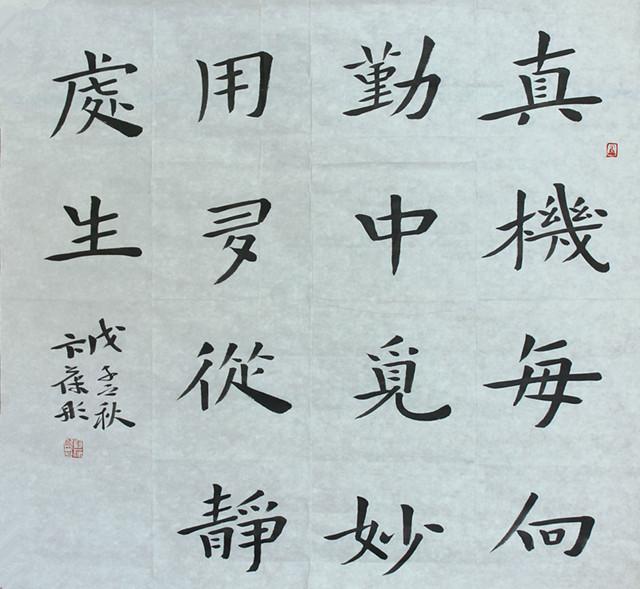 真機每向
勤中覓妙
用多從靜
處生
戊子秋
卞葆彤